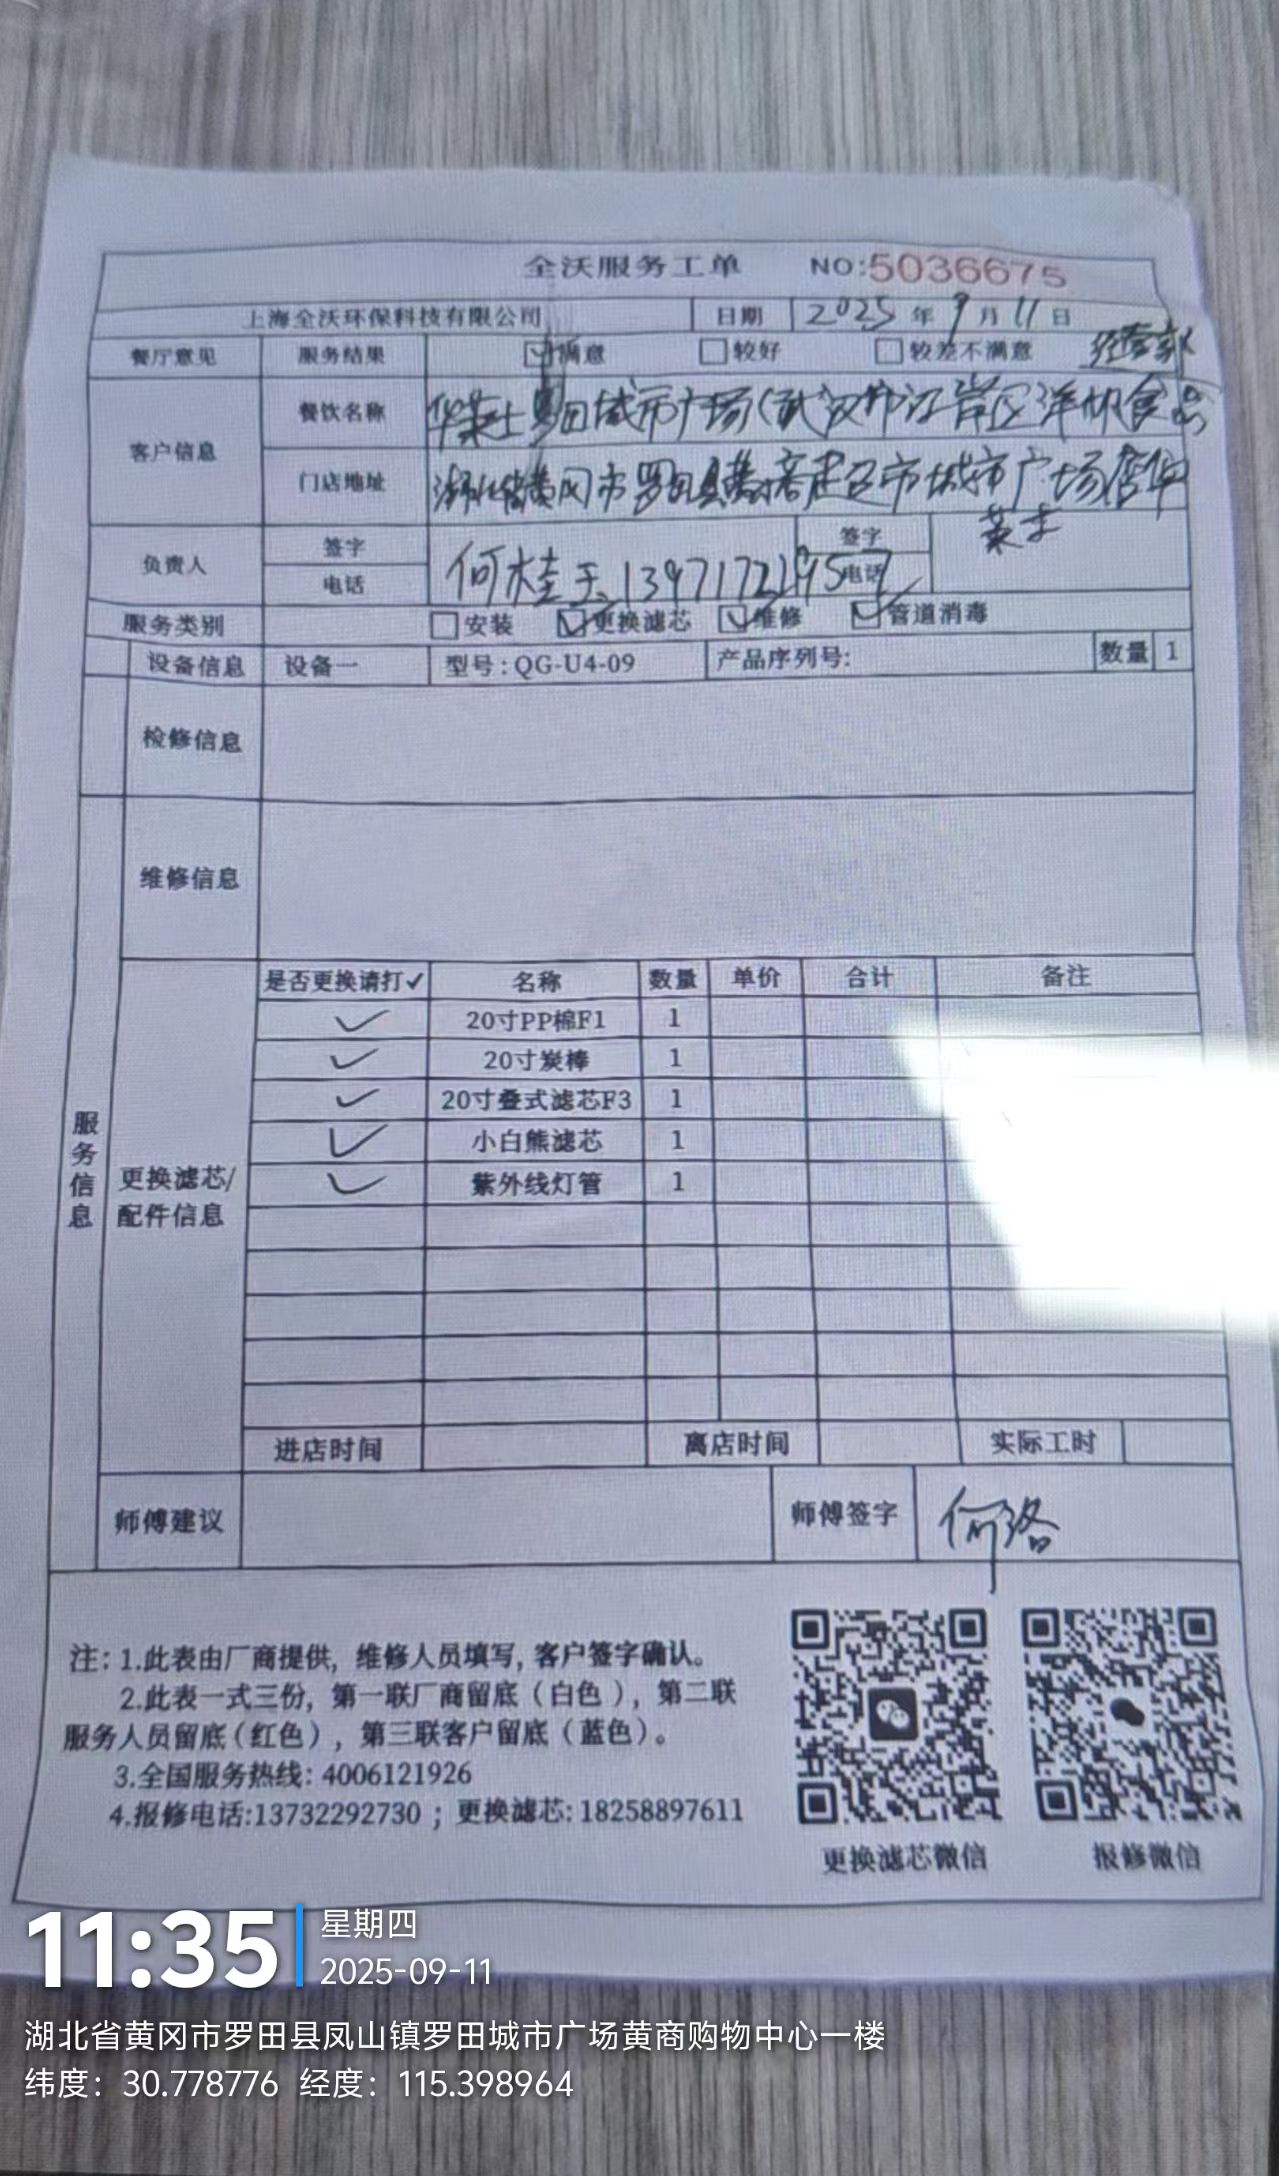 全沃服务工单 NO:5036675
上海全沃环保科技有限公司 日期 2025 年 9 月 11 日
餐厅意见 服务结果 ☑满意 □较好 □较差不满意 经营部
客户信息 餐饮名称 华莱士罗田城市广场(武汉市江岸区洋帆食品
门店地址 湖北省黄冈市罗田县黄商超市城市广场店华莱士
负责人 签字 电话 何桂玉 13971721957 签字 电话
服务类别 □安装 ☑更换滤芯 ☑维修 ☑管道消毒
设备信息 设备一 型号:QG-U4-09 产品序列号: 数量 1
检修信息
维修信息
服务信息
更换滤芯/配件信息
是否更换请打✓ 名称 数量 单价 合计 备注
✓ 20寸PP棉F1 1
✓ 20寸炭棒 1
✓ 20寸叠式滤芯F3 1
✓ 小白熊滤芯 1
✓ 紫外线灯管 1
进店时间 离店时间 实际工时
师傅建议 师傅签字 何洛
注: 1.此表由厂商提供, 维修人员填写, 客户签字确认。
2.此表一式三份, 第一联厂商留底(白色), 第二联
服务人员留底(红色), 第三联客户留底(蓝色)。
3.全国服务热线: 4006121926
4.报修电话:13732292730 ; 更换滤芯: 18258897611
更换滤芯微信 报修微信
11:35 星期四
2025-09-11
湖北省黄冈市罗田县凤山镇罗田城市广场黄商购物中心一楼
纬度: 30.778776 经度: 115.398964